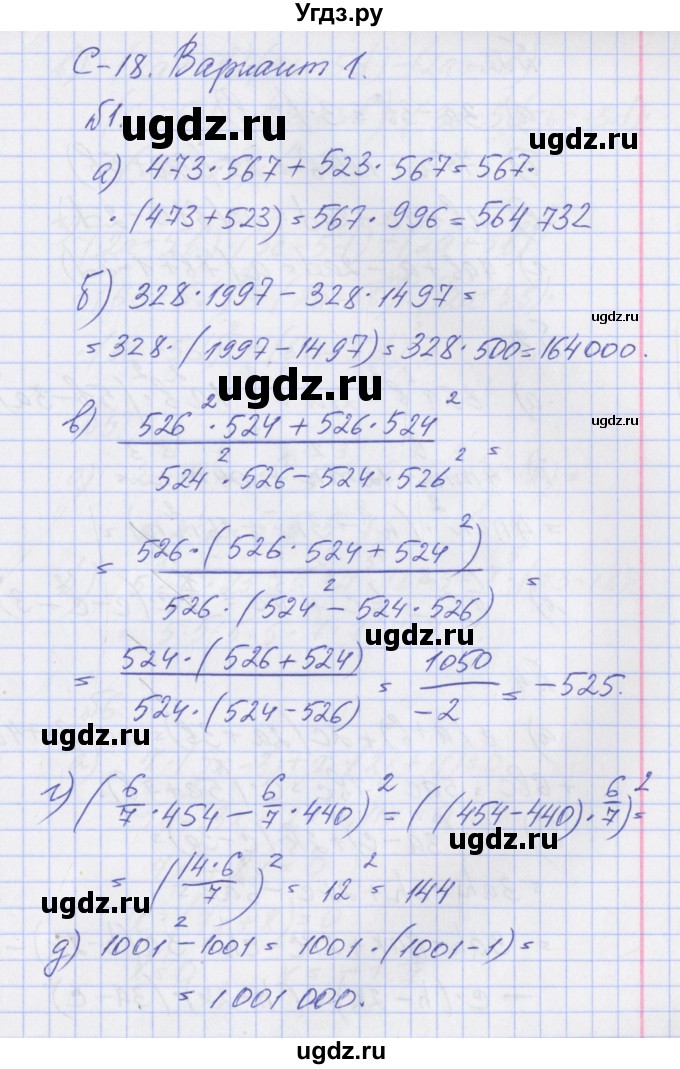 Угдз.ру
С-18. Вариант 1.
№1.
ugdz.ru
а) 473·567+523·567=567·
·(473+523)=567·996=564 732
б) 328·1997-328·1497=
ugdz.ru
=328·(1997-1497)=328·500=164000.
ugdz.ru
в) 526²·524+526·524²
ugdz.ru
524²·526-524·526² =
= 526·(526·524+524²)
526·(524²-524·526) =
ugdz.ru
= 524·(526+524)
524·(524-526) = 1050
-2 = -525.
ugdz.ru
г) (6/7·454-6/7·440)²=((454-440)·6/7)²=
ugdz.ru
= (14·6/7)² = 12² = 144
ugdz.ru
д) 1001²-1001=1001·(1001-1)=
=1001 000.
ugdz.ru